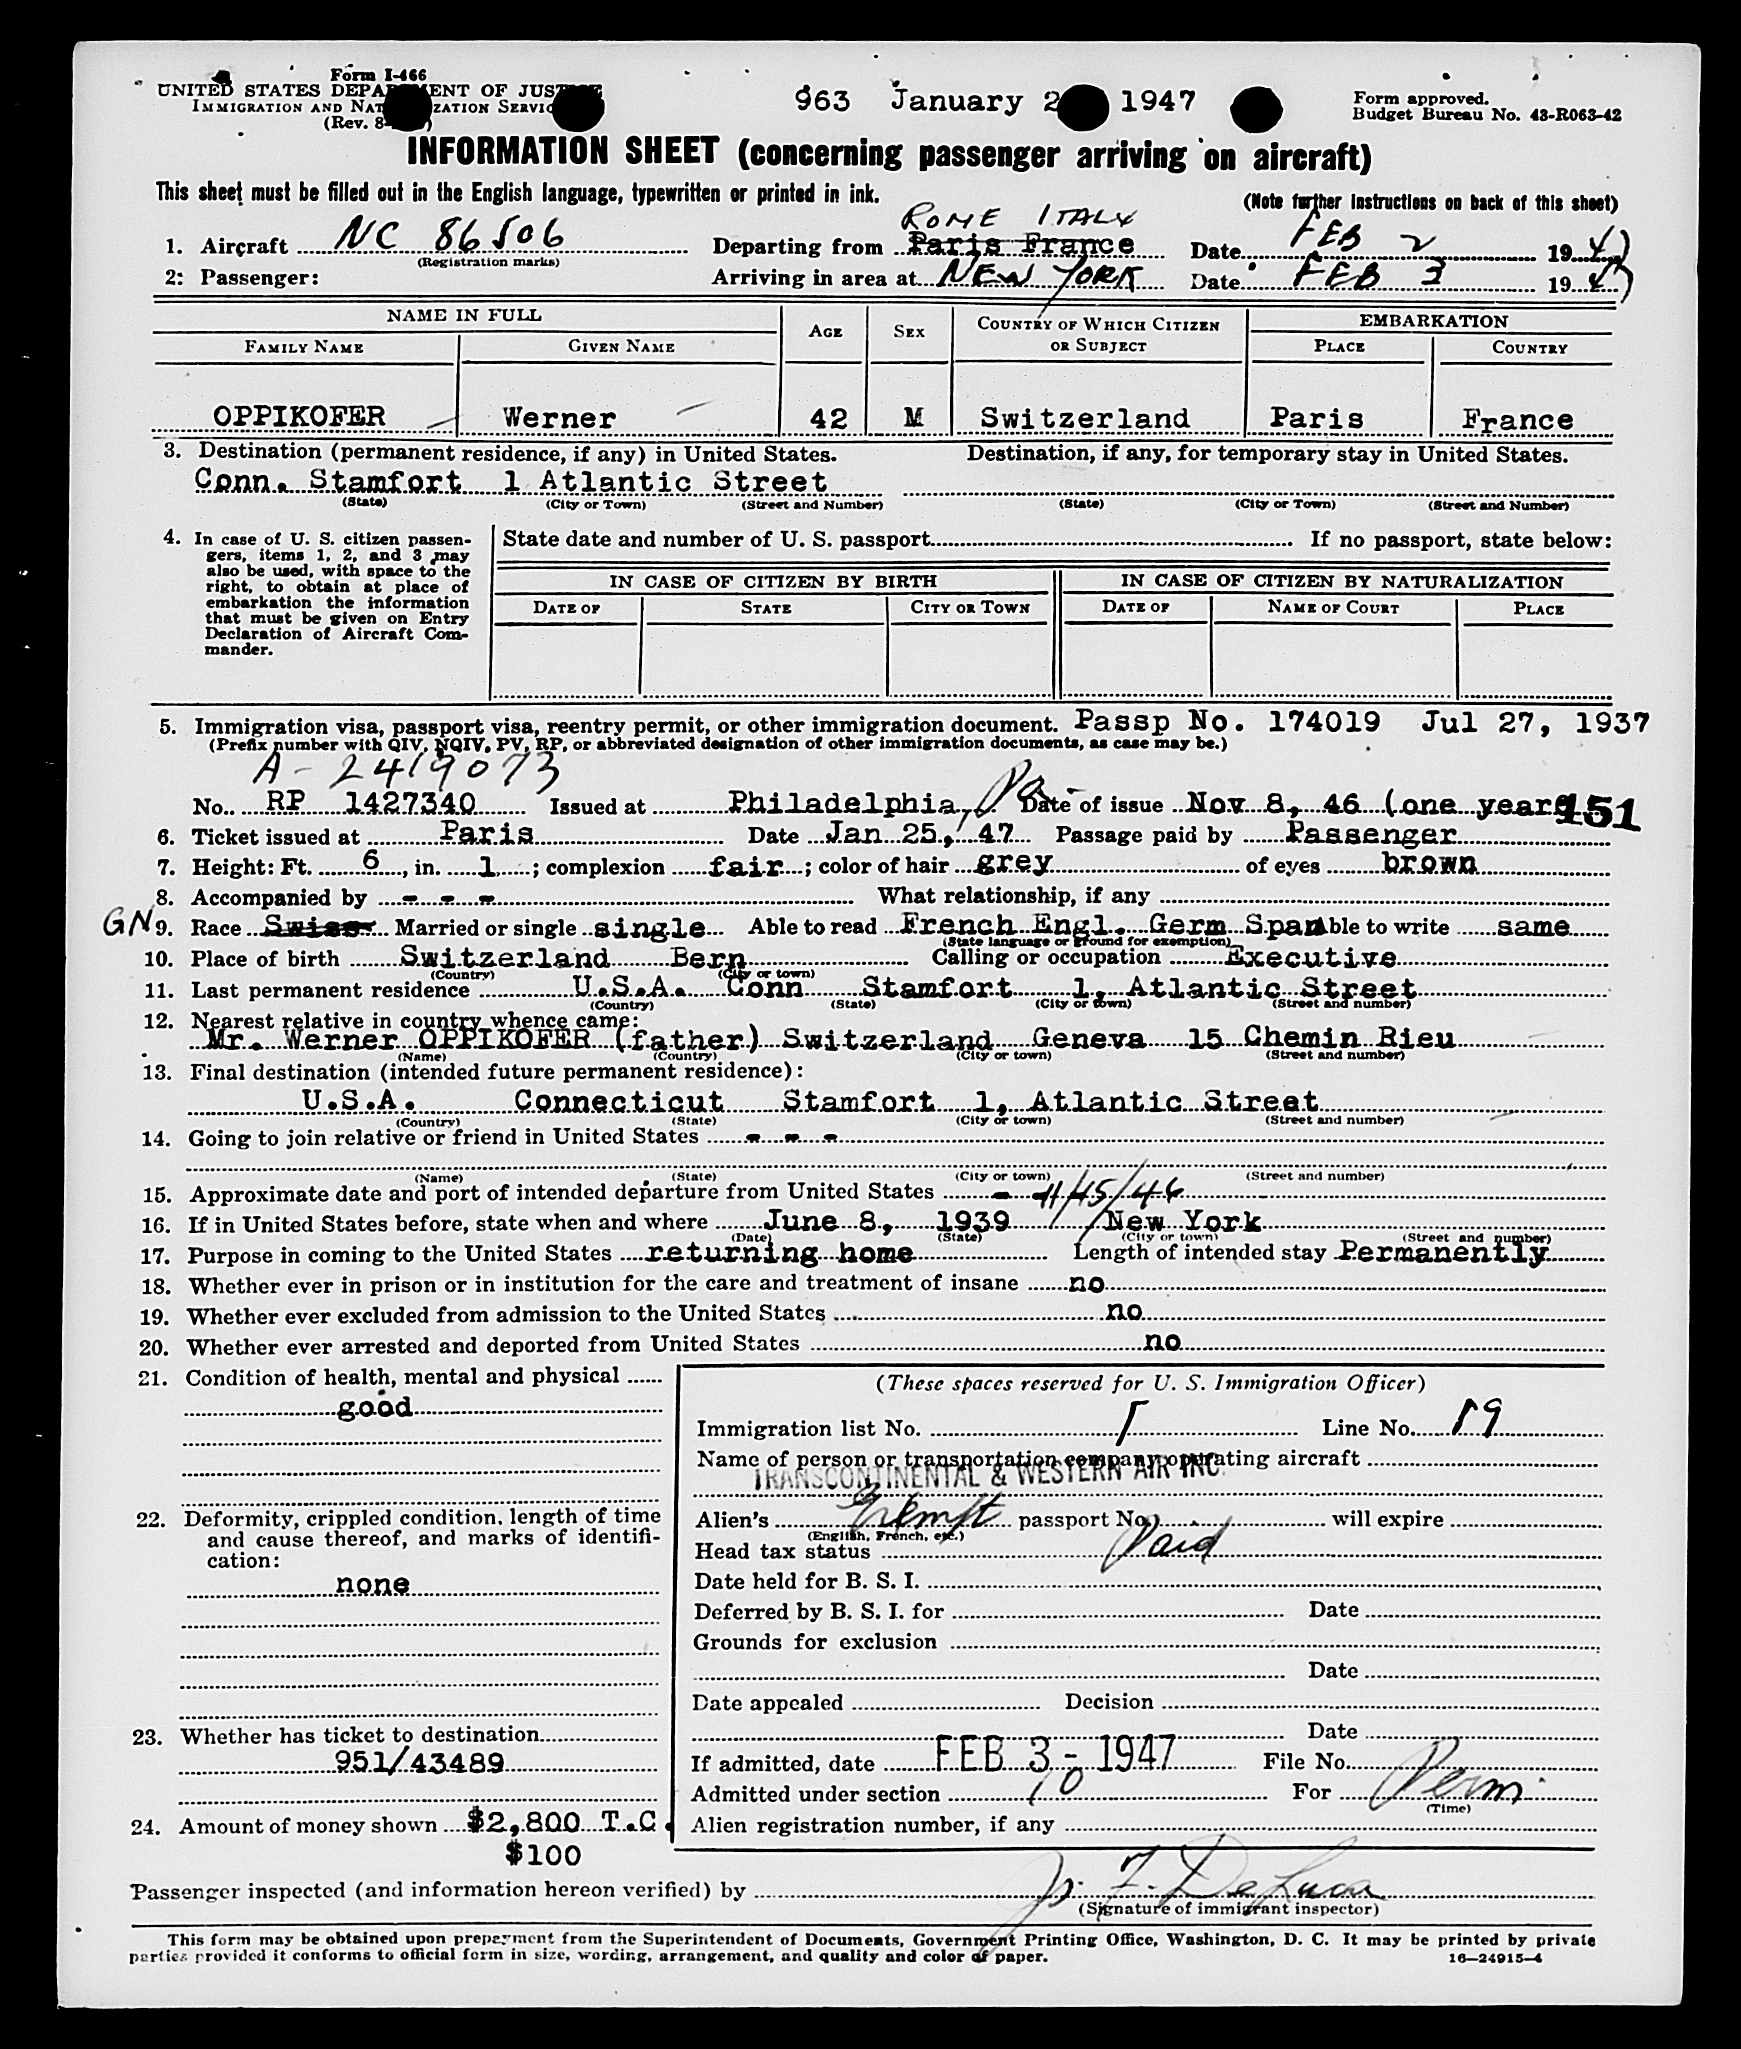 Form I-466
UNITED STATES DEPARTMENT OF JUSTICE
IMMIGRATION AND NATURALIZATION SERVICE
(Rev. 8-
963 January 2 1947
Form approved.
Budget Bureau No. 43-R063-42
INFORMATION SHEET (concerning passenger arriving on aircraft)
This sheet must be filled out in the English language, typewritten or printed in ink.
(Note further instructions on back of this sheet)
ROME ITALY
1. Aircraft NC 86506 Departing from Paris France Date FEB 2 1947
(Registration marks)
2: Passenger: Arriving in area at NEW YORK Date FEB 3 1947
NAME IN FULL AGE SEX COUNTRY OF WHICH CITIZEN OR SUBJECT EMBARKATION
FAMILY NAME GIVEN NAME PLACE COUNTRY
OPPIKOFER Werner 42 M Switzerland Paris France
3. Destination (permanent residence, if any) in United States. Destination, if any, for temporary stay in United States.
Conn. Stamfort 1 Atlantic Street
(State) (City or Town) (Street and Number) (State) (City or Town) (Street and Number)
4. In case of U. S. citizen passen-
gers, items 1, 2, and 3 may
also be used, with space to the
right, to obtain at place of
embarkation the information
that must be given on Entry
Declaration of Aircraft Com-
mander.
State date and number of U. S. passport If no passport, state below:
IN CASE OF CITIZEN BY BIRTH IN CASE OF CITIZEN BY NATURALIZATION
DATE OF STATE CITY OR TOWN DATE OF NAME OF COURT PLACE
5. Immigration visa, passport visa, reentry permit, or other immigration document. Passp No. 174019 Jul 27, 1937
(Prefix number with QIV, NQIV, PV, RP, or abbreviated designation of other immigration documents, as case may be.)
A-2419073
No. RP 1427340 Issued at Philadelphia, Pa Date of issue Nov 8, 46 (one year)
151
6. Ticket issued at Paris Date Jan 25, 47 Passage paid by Passenger
7. Height: Ft. 6, in. 1; complexion fair; color of hair grey of eyes brown
8. Accompanied by - - - What relationship, if any
GN 9. Race Swiss Married or single single Able to read French Engl. Germ Span Able to write same
(State language or ground for exemption)
10. Place of birth Switzerland Bern Calling or occupation Executive
(Country) (City or town)
11. Last permanent residence U.S.A. Conn Stamfort 1, Atlantic Street
(Country) (State) (City or town) (Street and number)
12. Nearest relative in country whence came:
Mr. Werner OPPIKOFER (father) Switzerland Geneva 15 Chemin Rieu
(Name) (Country) (City or town) (Street and number)
13. Final destination (intended future permanent residence):
U.S.A. Connecticut Stamfort 1, Atlantic Street
(Country) (State) (City or town) (Street and number)
14. Going to join relative or friend in United States - - -
(Name) (State) (City or town) (Street and number)
15. Approximate date and port of intended departure from United States - - 11/45/46
16. If in United States before, state when and where June 8, 1939 New York
(Date) (State) (City or town) (Street and number)
17. Purpose in coming to the United States returning home Length of intended stay Permanently
18. Whether ever in prison or in institution for the care and treatment of insane no
19. Whether ever excluded from admission to the United States no
20. Whether ever arrested and deported from United States no
21. Condition of health, mental and physical
good
22. Deformity, crippled condition, length of time
and cause thereof, and marks of identifi-
cation:
none
23. Whether has ticket to destination
951/43489
24. Amount of money shown $2,800 T.C.
$100
(These spaces reserved for U. S. Immigration Officer)
Immigration list No. 5 Line No. 19
Name of person or transportation company operating aircraft
TRANSCONTINENTAL & WESTERN AIR INC.
Alien's Exempt passport No. will expire
(English, French, etc.)
Head tax status Paid
Date held for B. S. I.
Deferred by B. S. I. for Date
Grounds for exclusion
Date
Date appealed Decision
Date
If admitted, date FEB 3 - 1947 File No.
Admitted under section 10 For Perm.
(Time)
Alien registration number, if any
Passenger inspected (and information hereon verified) by J. F. DeLuca
(Signature of immigrant inspector)
This form may be obtained upon prepayment from the Superintendent of Documents, Government Printing Office, Washington, D. C. It may be printed by private
parties provided it conforms to official form in size, wording, arrangement, and quality and color of paper.
16—24915-4